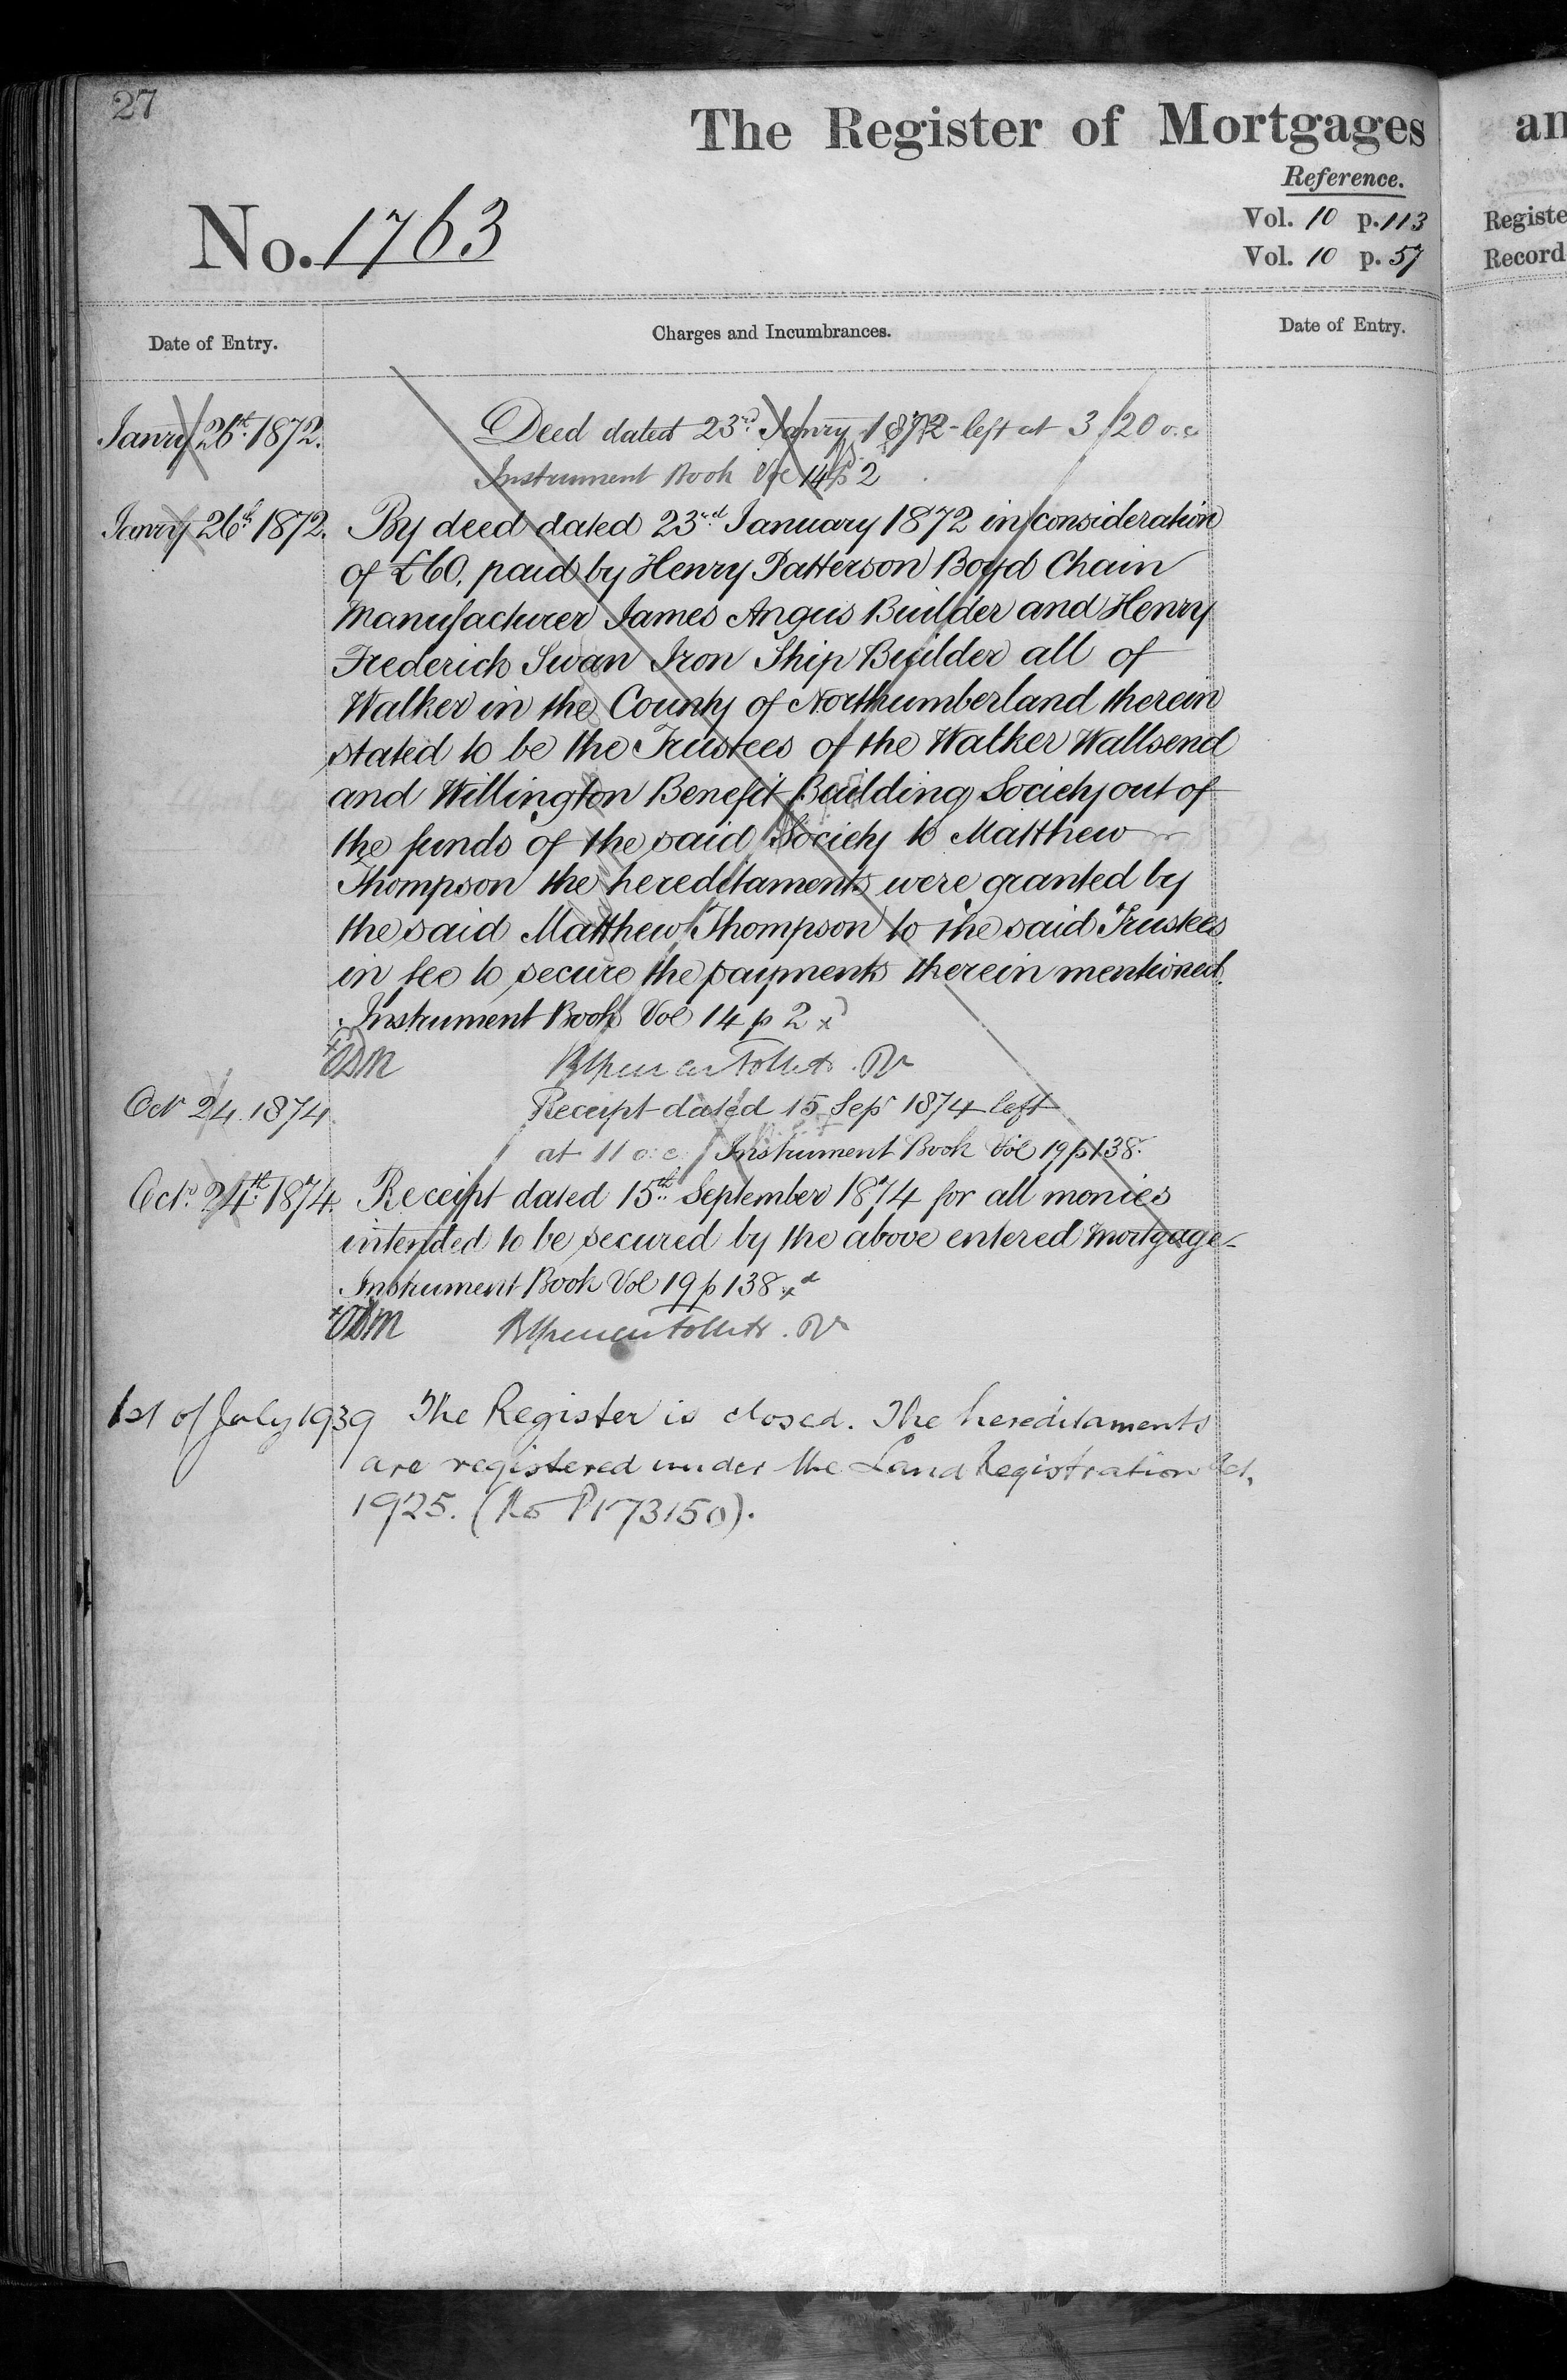 27
The Register of Mortgages
an
Reference.
No. 1763
Vol. 10 p. 113
Registe
Vol. 10 p. 57
Record
Date of Entry.
Charges and Incumbrances.
Date of Entry.
Janry 26th 1872. Deed dated 23rd Janry 1872 left at 3/20 o.c
Instrument Book Vol 14 p 2
Janry 26th 1872. By deed dated 23rd January 1872 in consideration
of £60, paid by Henry Patterson Boyd Chain
Manufacturer James Angus Builder and Henry
Frederick Swan Iron Ship Builder all of
Walker in the County of Northumberland therein
stated to be the Trustees of the Walker Wallsend
and Willington Benefit Building Society out of
the funds of the said Society to Matthew
Thompson the hereditaments were granted by
the said Matthew Thompson to the said Trustees
in fee to secure the payments therein mentioned.
Instrument Book Vol 14 p 2
Oct 24. 1874. Receipt dated 15 Sept 1874 left
at 11 o.c. Instrument Book Vol 19 p 138.
Octr. 24th 1874. Receipt dated 15th September 1874 for all monies
intended to be secured by the above entered mortgage
Instrument Book Vol 19 p 138
1st of July 1939 The Register is closed. The hereditaments
are registered under the Land Registration Act,
1925. (No P173150).